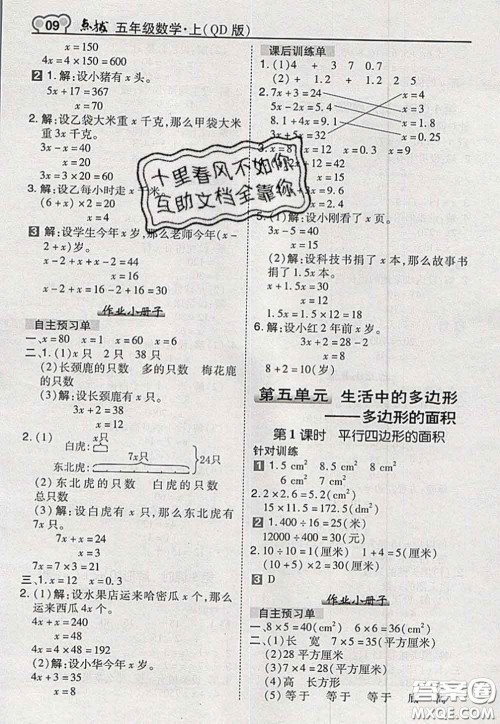 09 点拨 五年级数学·上(QD版)
x=150
4x=4×150=600
2 1.解:设小猪有x头。
5x+17=367
x=70
2.解:设乙袋大米重x千克,那么甲袋大米
重3x千克。
3.解:设乙每小时走x千米。
(6+x)×2=20
x=4
3 解:设学生今年x岁,那么老师今年
x-2+x+2=44
x+x=44
x=16
x-2+16=16-2+16=30
作业小册子
自主预习单
一、x=80 x=1 x=60
二、1.(1)x只 2只 38只
(2)长颈鹿的只数 多的只数 梅花鹿
的只数
(3)解:设长颈鹿有x只。
3x+2=38
x=12
2.(1)
白虎:
x只
7x只
24只
东北虎:
(2)东北虎的只数+白虎的只数=24只
(3)解:设白虎有x只,那么东北虎有
7x只。
7x+x=24
x=3
7x=7×3=21
三、1.x=12 x=0.3
2.(1)解:设水果店运来哈密瓜x千克,那么
运来西瓜4x千克。
4x+x=60
x=12
4x=48
(2)解:设小华今年x岁。
4x-3=33
x=9
课后训练单
一、(1)4 +3 7 0.7 8
2.7x+3=24 x=4
5x-2x=5.4 x=3
3x-4=8 x=0.25
3x=9 x=1.8
x=0.45
(2)解:设小刚看了x页。
x=30
(3)解:设科技书捐了x本,那么故事书
捐了1.5x本。
x+1.5x=300
x=120
1.5x=180
3.解:设小红2年前x岁。
x=8
8+2=10(岁)
第五单元 生活中的多边形
——多边形的面积
第1课时 平行四边形的面积
针对训练
1 1.5cm² 6cm² 8cm²
2.2×2.6=5.2(dm²)
15×11.5=172.5(dm²)
2 1.400÷16=25(米)
12000÷400=30(元)
2.10÷2=5(厘米) 1+4=5(厘米)
3 D
作业小册子
自主预习单
一、8×5=40(cm²) 6×6=36(cm²)
二、(1)长 宽 7×5=35(平方厘米)
(2)28(平方厘米)
(3)28(平方厘米) 7×4=28(平方厘米)
(4)高 长方形
(5)等于 等于 等于 底 高
十里春风不如你
互助文档全靠你
答案圈
MXQE.COM